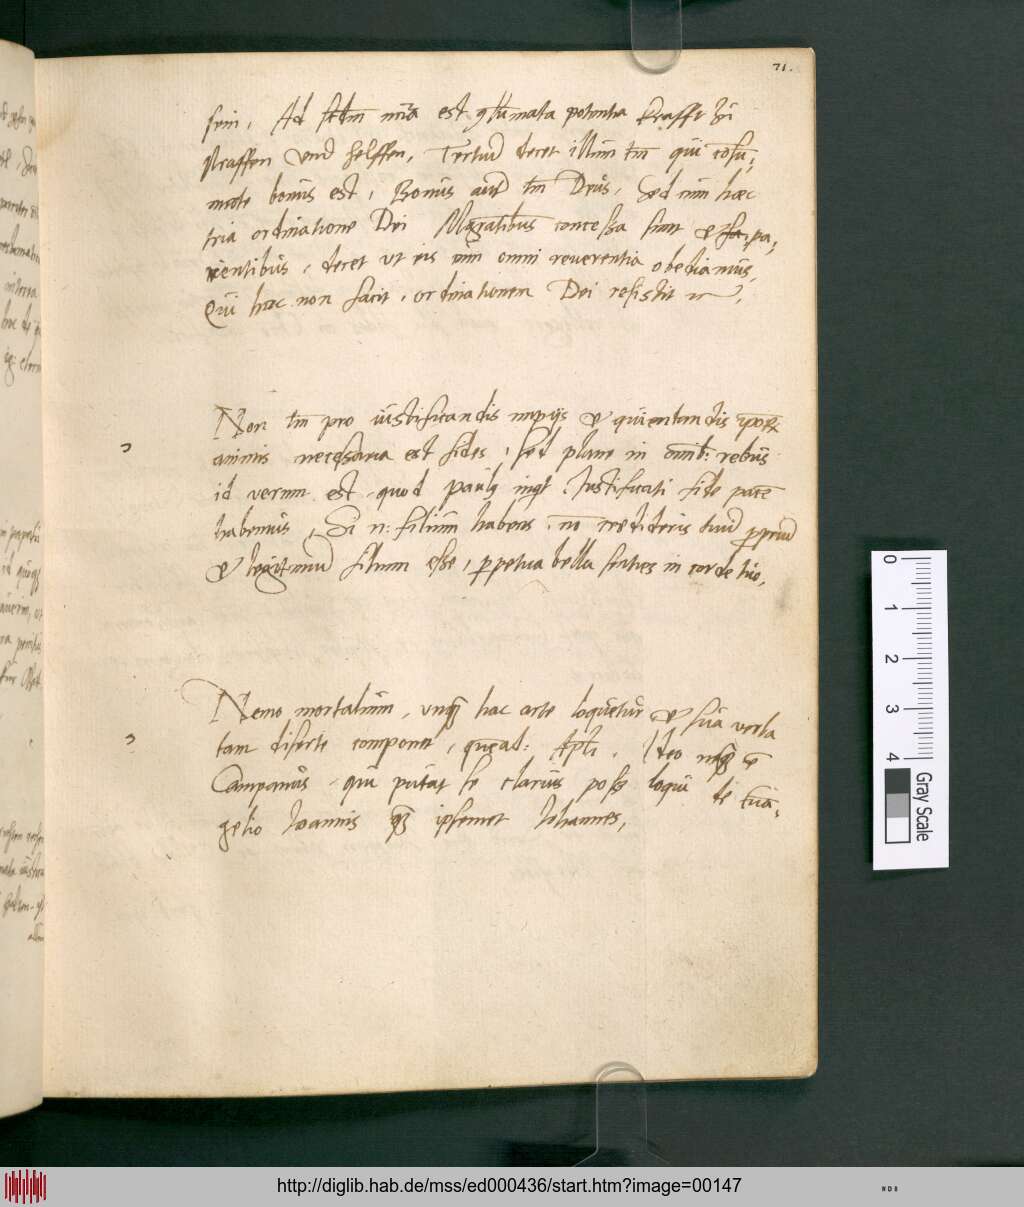 71.
sein, Ad sctm mia est gsumata potentia krafft zu
straffen und helffen, Tertiu decet illum tm qui cosu-
mate bonus est, Bonus aut tm Deus, Sed cum haec
tria ordinatione Dei Magratibus concessa sint et pa-
rentibus, decet ut eis cum omni reuerentia obediamus,
Qui haec non facit, ordinationem Dei resistit
Non tm pro iustificandis impijs et quietandis ipor
animis necessaria est fides, sed plane in omnib: rebus
id verum est, quod Paulus inqt. Iustificati fide pacem
habemus, Si n: filium habens, no credideris tuu propriu
et legitimu filium esse, perpetua bella senties in corde tuo,
Nemo mortalium, unq hac arte loquetur et sua verba
tam diserte componet, quead: Apli. Ideo
Campanus, qui putat se clarius posse loqui de Eua-
gelio Ioannis q ipsemet Iohannes,
0
1
2
3
4
Gray Scale
http://diglib.hab.de/mss/ed000436/start.htm?image=00147